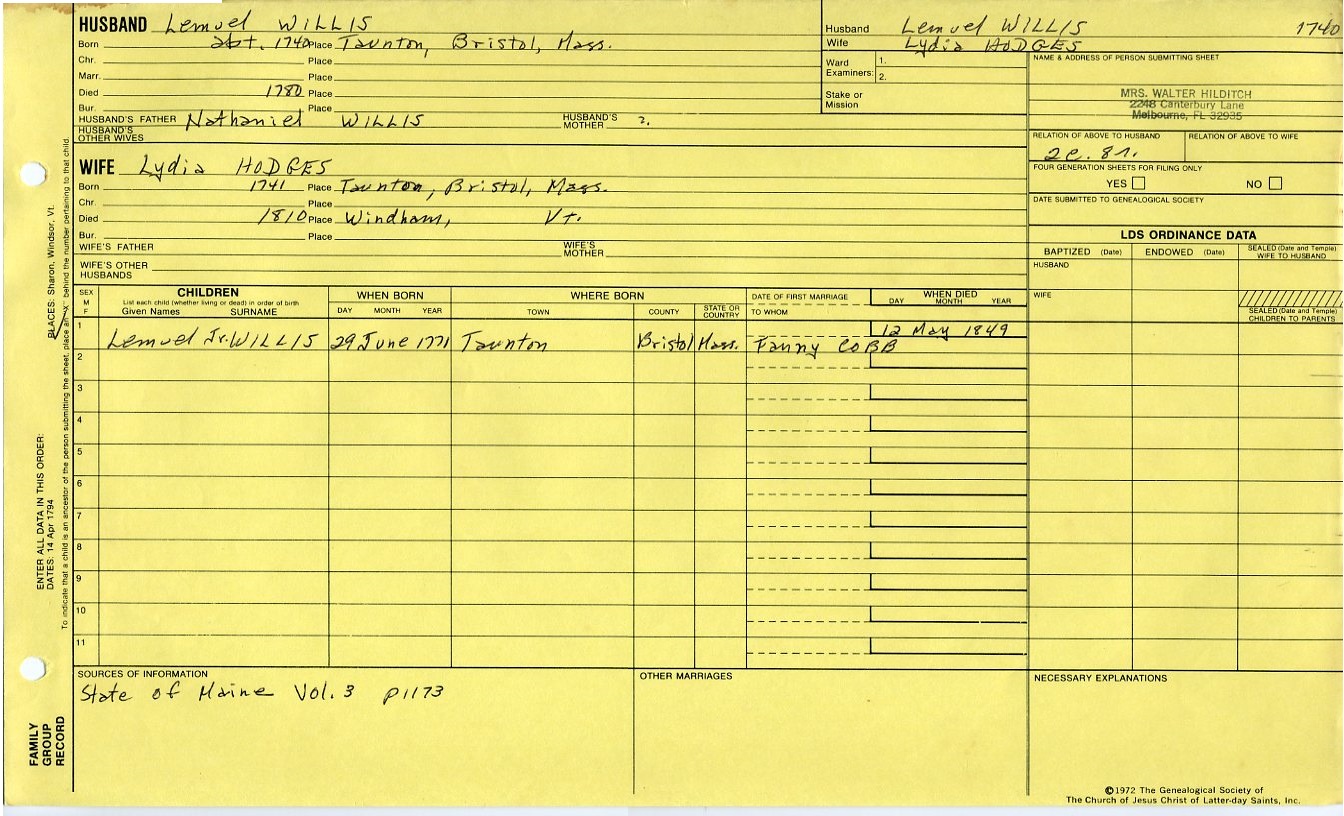 HUSBAND Lemuel WILLIS
Born abt. 1740 Place Taunton, Bristol, Mass.
Chr. Place
Marr. Place
Died 1780 Place
Bur. Place
HUSBAND'S FATHER Nathaniel WILLIS HUSBAND'S MOTHER ?.
HUSBAND'S OTHER WIVES
WIFE Lydia HODGES
Born 1741 Place Taunton, Bristol, Mass.
Chr. Place
Died 1810 Place Windham, Vt.
Bur. Place
WIFE'S FATHER WIFE'S MOTHER
WIFE'S OTHER HUSBANDS
Husband Lemuel WILLIS 1740
Wife Lydia HODGES
Ward Examiners: 1.
2.
Stake or Mission
NAME & ADDRESS OF PERSON SUBMITTING SHEET
MRS. WALTER HILDITCH
2248 Canterbury Lane
Melbourne, FL 32935
RELATION OF ABOVE TO HUSBAND RELATION OF ABOVE TO WIFE
2C. 8r.
FOUR GENERATION SHEETS FOR FILING ONLY
YES NO
DATE SUBMITTED TO GENEALOGICAL SOCIETY
LDS ORDINANCE DATA
BAPTIZED (Date) ENDOWED (Date) SEALED (Date and Temple) WIFE TO HUSBAND
HUSBAND
WIFE
SEALED (Date and Temple) CHILDREN TO PARENTS
SEX M F
CHILDREN
List each child (whether living or dead) in order of birth
Given Names SURNAME
WHEN BORN
DAY MONTH YEAR
WHERE BORN
TOWN COUNTY STATE OR COUNTRY
DATE OF FIRST MARRIAGE
TO WHOM
WHEN DIED
DAY MONTH YEAR
1 12 May 1849
Lemuel Jr. WILLIS 29 June 1771 Taunton Bristol Mass. Fanny COBB
2
3
4
5
6
7
8
9
10
11
SOURCES OF INFORMATION
State of Maine Vol. 3 p1173
OTHER MARRIAGES
NECESSARY EXPLANATIONS
©1972 The Genealogical Society of
The Church of Jesus Christ of Latter-day Saints, Inc.
FAMILY GROUP RECORD
ENTER ALL DATA IN THIS ORDER:
DATES: 14 Apr 1794 PLACES: Sharon, Windsor, Vt.
To indicate that a child is an ancestor of the person submitting the sheet, place an "X" behind the number pertaining to that child.